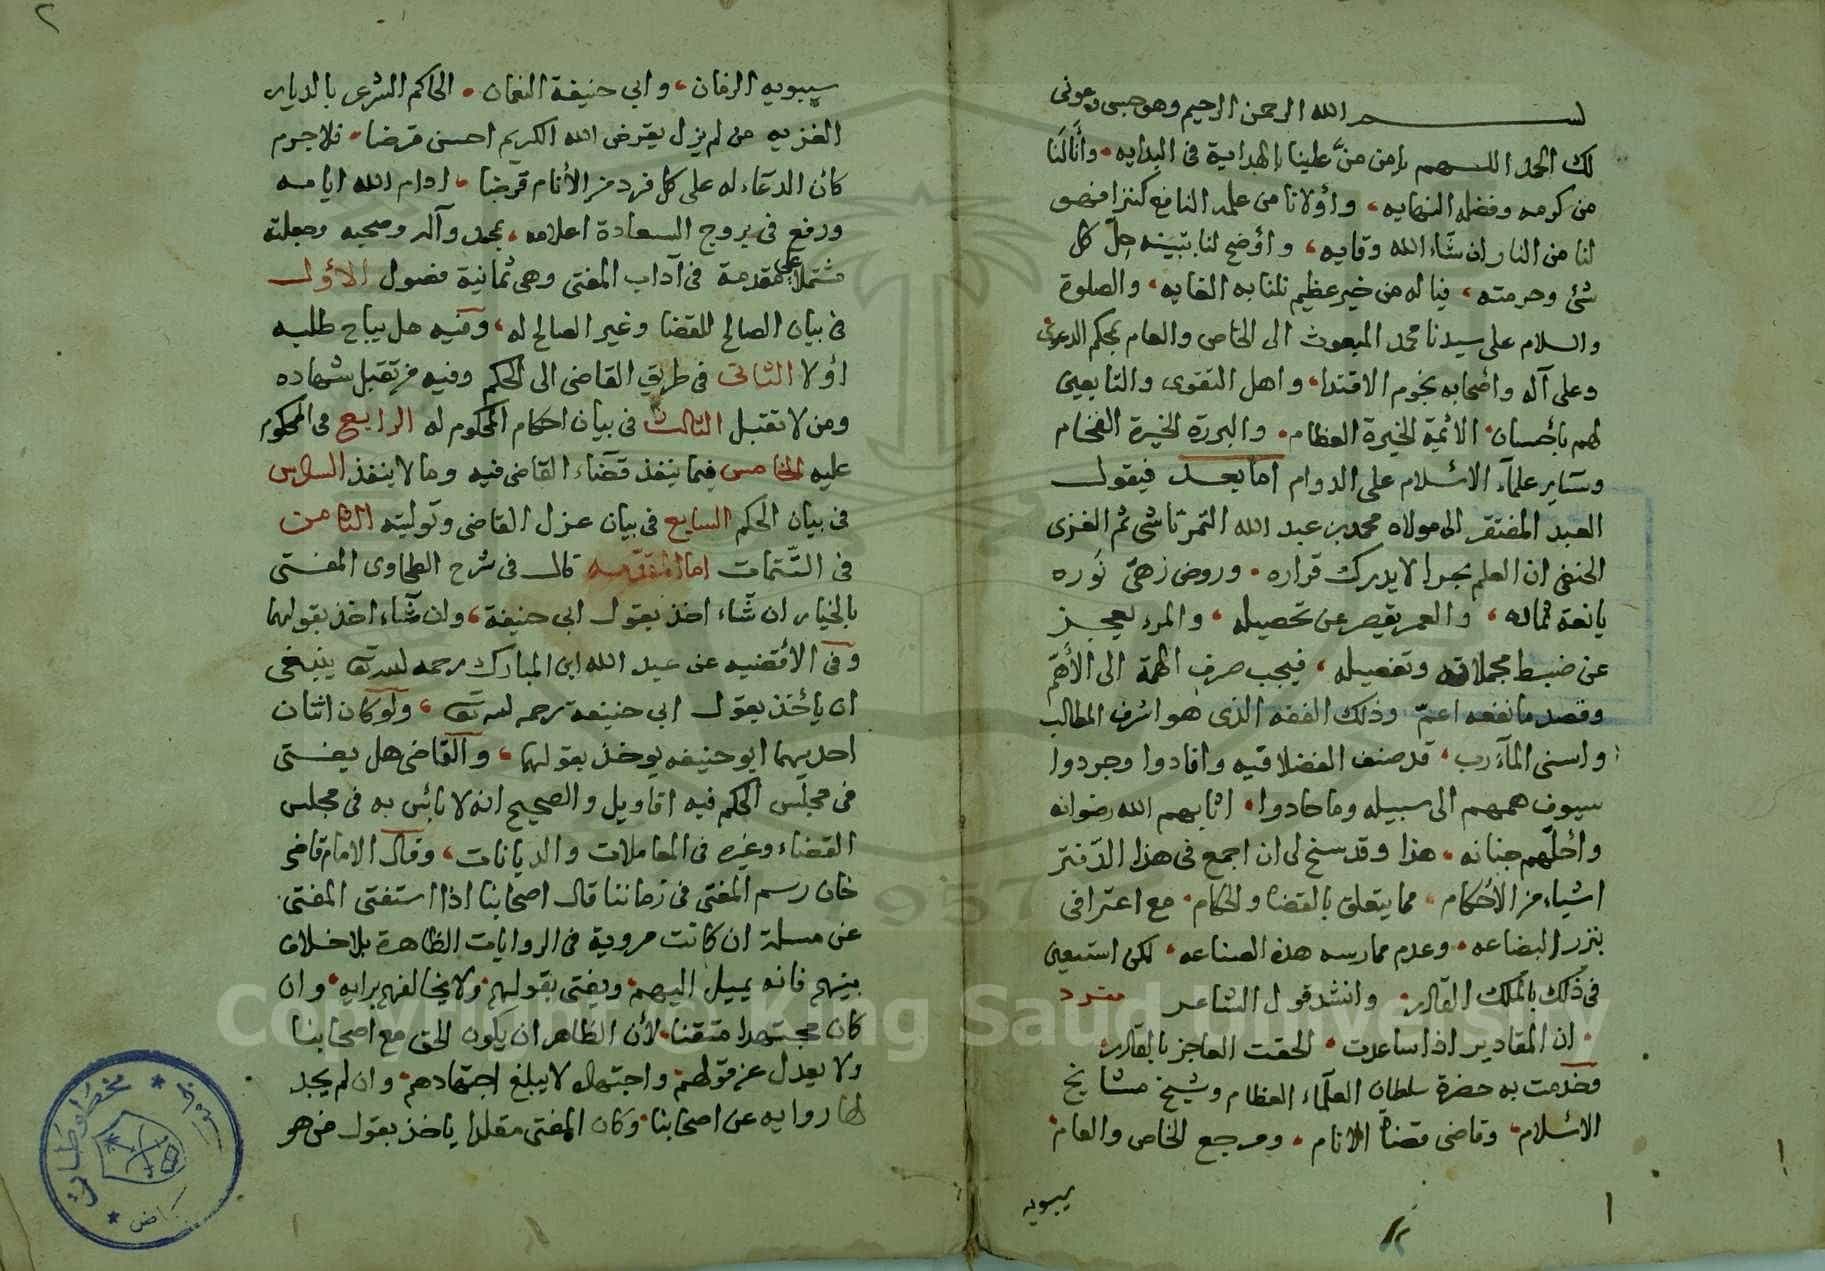 بسم الله الرحمن الرحيم وهو حسبى وعونى
لك الحمد اللهم يا من منَّ علينا بالهداية فى البدايه، وأنالنا
من كرمه وفضله النهايه، وأولانا من علمه النافع كنزا فهو
لنا من النار ان شاء الله وقايه، وأوضح لنا بتبينه حلّ كل
شئ وحرمته، فياله من خير عظيم نلنا به الغايه، والصلوة
والسلام على سيدنا محمد المبعوث الى الخاص والعام بمحكم الدعوى
وعلى آله وأصحابه نجوم الاقتدا، واهل التقوى والتابعين
لهم بأحسان الائمة الخيرة العظام، والبررة الخيرة الفخام
وسآير علمآء الاسلام على الدوام اما بعد فيقول
العبد المفتقر الى مولاه محمد بن عبد الله التمرتاشى ثم الغزى
الحنفى ان العلم بحر لا يدرك قراره، وروض زهىّ نَوره
يانعة ثماره، والعمر يقصر عن تحصيله، والمرء يعجز
عن ضبط مجملاته وتفصيله، فيجب صرف الهمة الى الأهمّ
وقصد ما نفعه اعمّ وذلك الفقه الذى هو اشرف المطالب
واسنى المآءرب، قد صنف الفضلا فيه وافادوا وجردوا
سيوف هممهم الى سبيله وما حادوا، اثابهم الله رضوانه
وأحلّهم جنانه، هذا وقد سنح لى ان اجمع فى هذا الدّفتر
اشياء من الأحكام، مما يتعلق بالقضاء والحكام، مع اعترافى
بنزر البضاعه، وعدم ممارسه هذه الصناعه، لكن استعين
فى ذلك بالملك القادر، وانشد قول الشاعر مفرد
ان المقادير اذا ساعدت، الحقت العاجز بالقادر
فخدمت به حضرة سلطان العلمآء العظام وشيخ مشايخ
الاسلام، وقاضى قضاة الانام، ومرجع الخاص والعام
سيبويه
١
٢
سيبويه الزمان، وابى حنيفة النعمان، الحاكم الشرعى بالديار
الغزيه من لم يزل يقرض الله الكريم احسن قرضا، فلا جرم
كان الدعاء له على كل فرد من الأنام قرضا، ادام الله ايامه
ورفع فى بروج السعادة اعلامه، بمحمد وآله وصحبه وجعلته
مشتملا على مقدمة فى آداب المفتى وهى ثمانية فصول الاول
فى بيان الصالح للقضا وغير الصالح له، وفيه هل يباح طلبه
اولا الثانى فى طريق القاضى الى الحكم وفيه من تقبل شهاده
ومن لا تقبل الثالث فى بيان احكام المحكوم له الرابع فى المحكوم
عليه الخامس فيما ينفذ قضاء القاضى فيه وما لا ينفذ السادس
فى بيان الحكم السابع فى بيان عزل القاضى وتوليته الثامن
فى التّتمات اما المقدمه قال فى شرح الطحاوى المفتى
بالخيار ان شاء اخذ بقول ابى حنيفة، وان شاء اخذ بقولهما
وفى الأقضيه عن عبد الله ابن المبارك رحمه الله تعالى ينبغى
ان يأخذ بقول ابى حنيفة رحمه الله تعالى، ولو كان اثنان
احديهما ابو حنيفه يوخذ بقولهما، والقاضى هل يفتى
فى مجلس الحكم فيه اقاويل والصحيح انه لا بأس به فى مجلس
القضاء وغيره فى المعاملات والديانات، وقال الامام قاضى
خان رسم المفتى فى زماننا قال اصحابنا اذا استفتى المفتى
عن مسلة ان كانت مروية فى الروايات الظاهرة بلا خلاف
بينهم فانه يميل اليهم، ويفتى بقولهم ولا يخالفهم برايه، وان
كان مجتهدا متقنا، لأن الظاهر ان يكون الحق مع اصحابنا
ولا يعدل عن قولهم، واجتهاده لا يبلغ اجتهادهم، وان لم يجد
لها روايه عن اصحابنا، وكان المفتى مقلدا ياخذ بقول من هو
Copyright © King Saud University
1957
مخطوطات